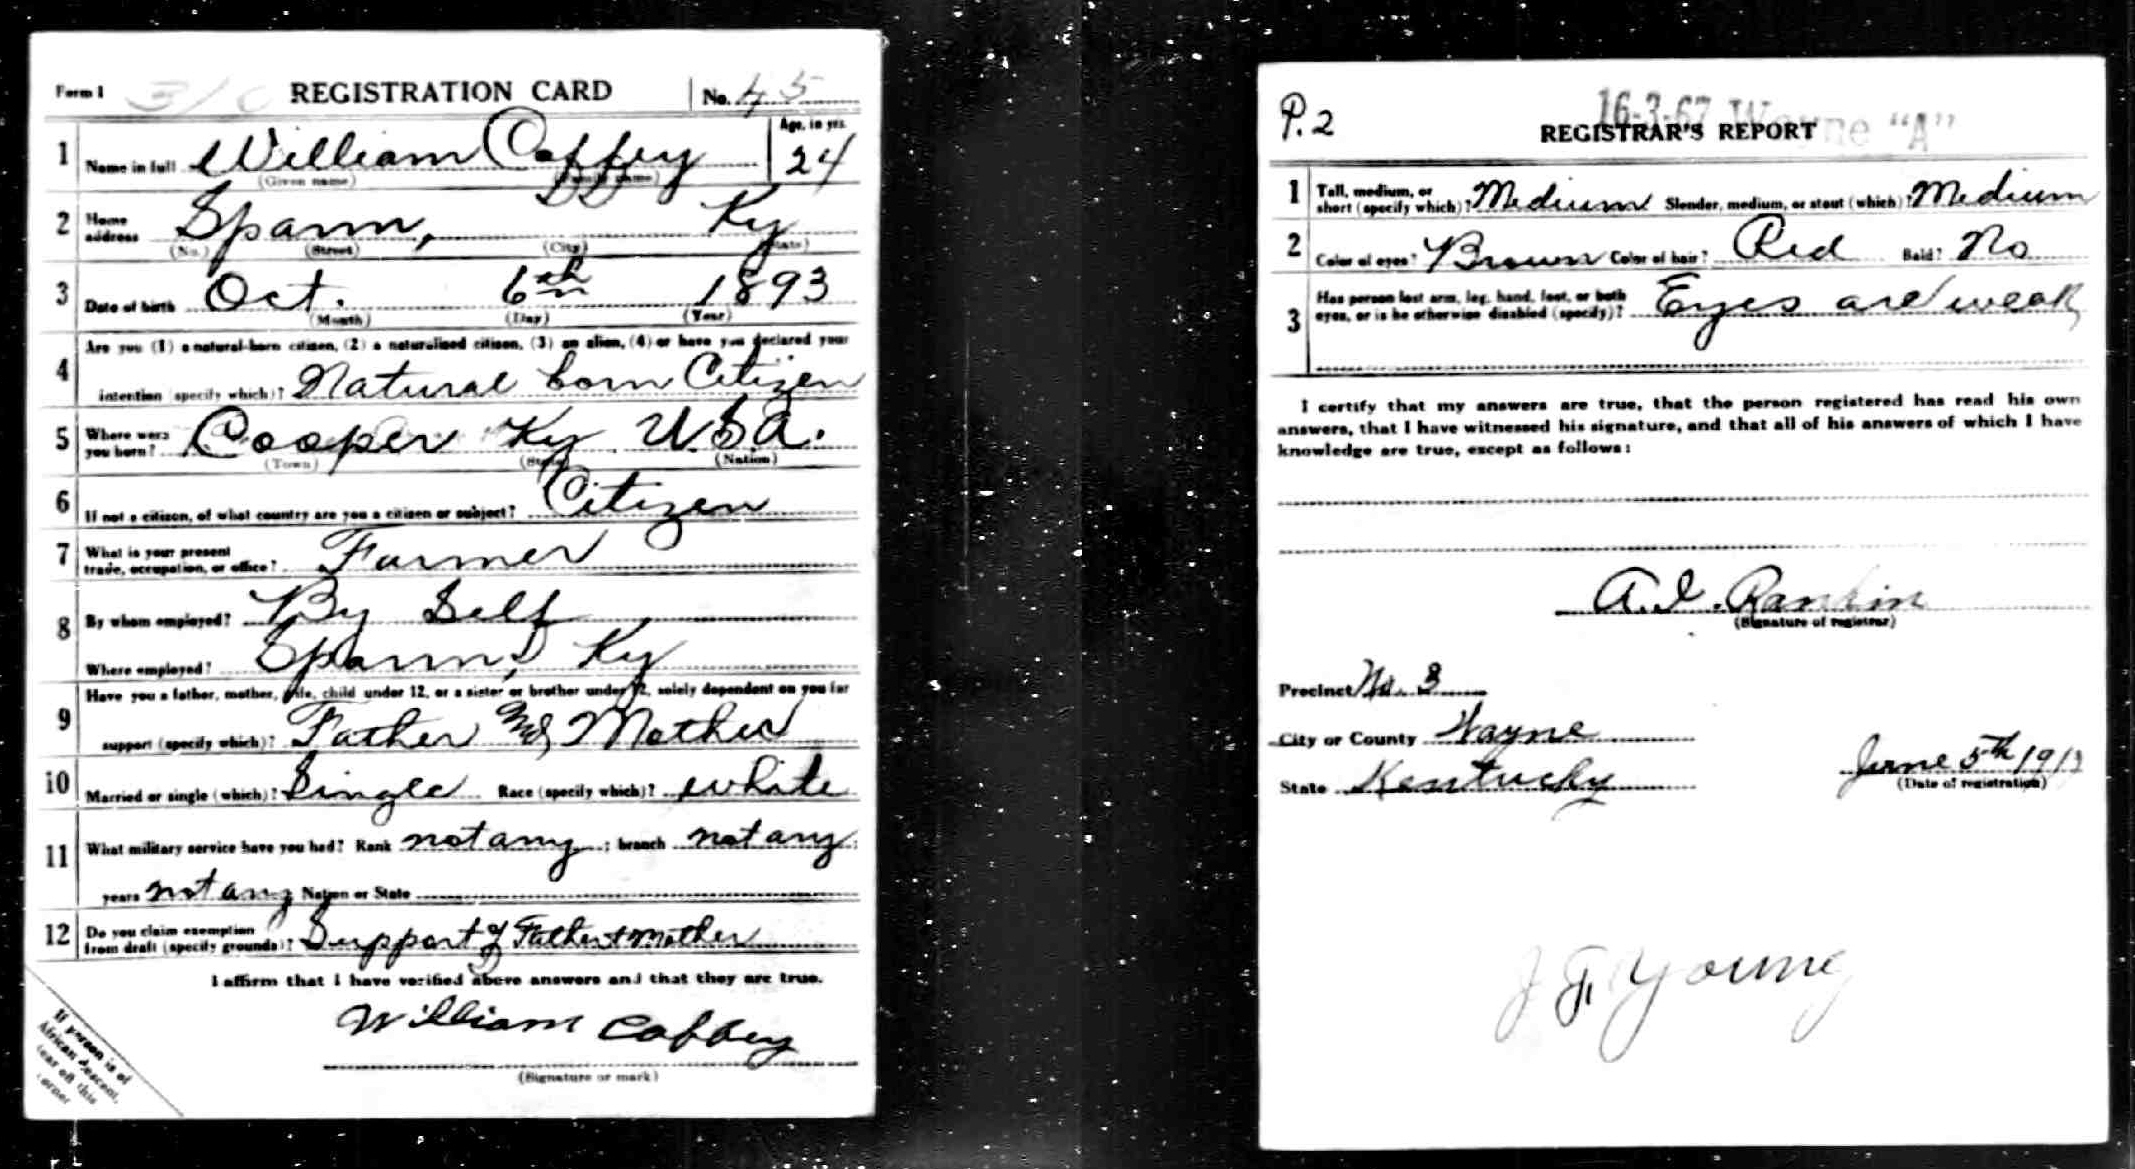 Form 1 310 REGISTRATION CARD No. 45
1 Name in full William Coffey Age, in yrs. 24
(Given name) (Family name)
2 Home address Spann, Ky
(No.) (Street) (City) (State)
3 Date of birth Oct. 6th 1893
(Month) (Day) (Year)
Are you (1) a natural-born citizen, (2) a naturalized citizen, (3) an alien, (4) or have you declared your
4 intention (specify which)? Natural born Citizen
5 Where were you born? Cooper Ky U.S.A.
(Town) (State) (Nation)
6 If not a citizen, of what country are you a citizen or subject? Citizen
7 What is your present trade, occupation, or office? Farmer
8 By whom employed? By Self
Where employed? Spann, Ky
Have you a father, mother, wife, child under 12, or a sister or brother under 12, solely dependent on you for
9 support (specify which)? Father and Mother
10 Married or single (which)? Single Race (specify which)? white
11 What military service have you had? Rank not any ; branch not any ;
years not any Nation or State
12 Do you claim exemption from draft (specify grounds)? Support of Father + Mother
I affirm that I have verified above answers and that they are true.
William Coffey
(Signature or mark)
If person is of
African descent,
tear off this
corner
P.2 16-3-67 Wayne "A"
REGISTRAR'S REPORT
1 Tall, medium, or short (specify which)? Medium Slender, medium, or stout (which)? Medium
2 Color of eyes? Brown Color of hair? Red Bald? No
3 Has person lost arm, leg, hand, foot, or both eyes, or is he otherwise disabled (specify)? Eyes are weak
I certify that my answers are true, that the person registered has read his own
answers, that I have witnessed his signature, and that all of his answers of which I have
knowledge are true, except as follows:
A.I. Rankin
(Signature of registrar)
Precinct No. 3
City or County Wayne
State Kentucky June 5th 1917
(Date of registration)
J F Young